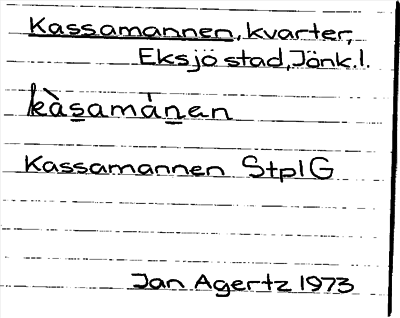 Kassamannen, kvarter,
Eksjö stad, Jönk.l.
kàs̲amán̲en
Kassamannen StplG
Jan Agertz 1973